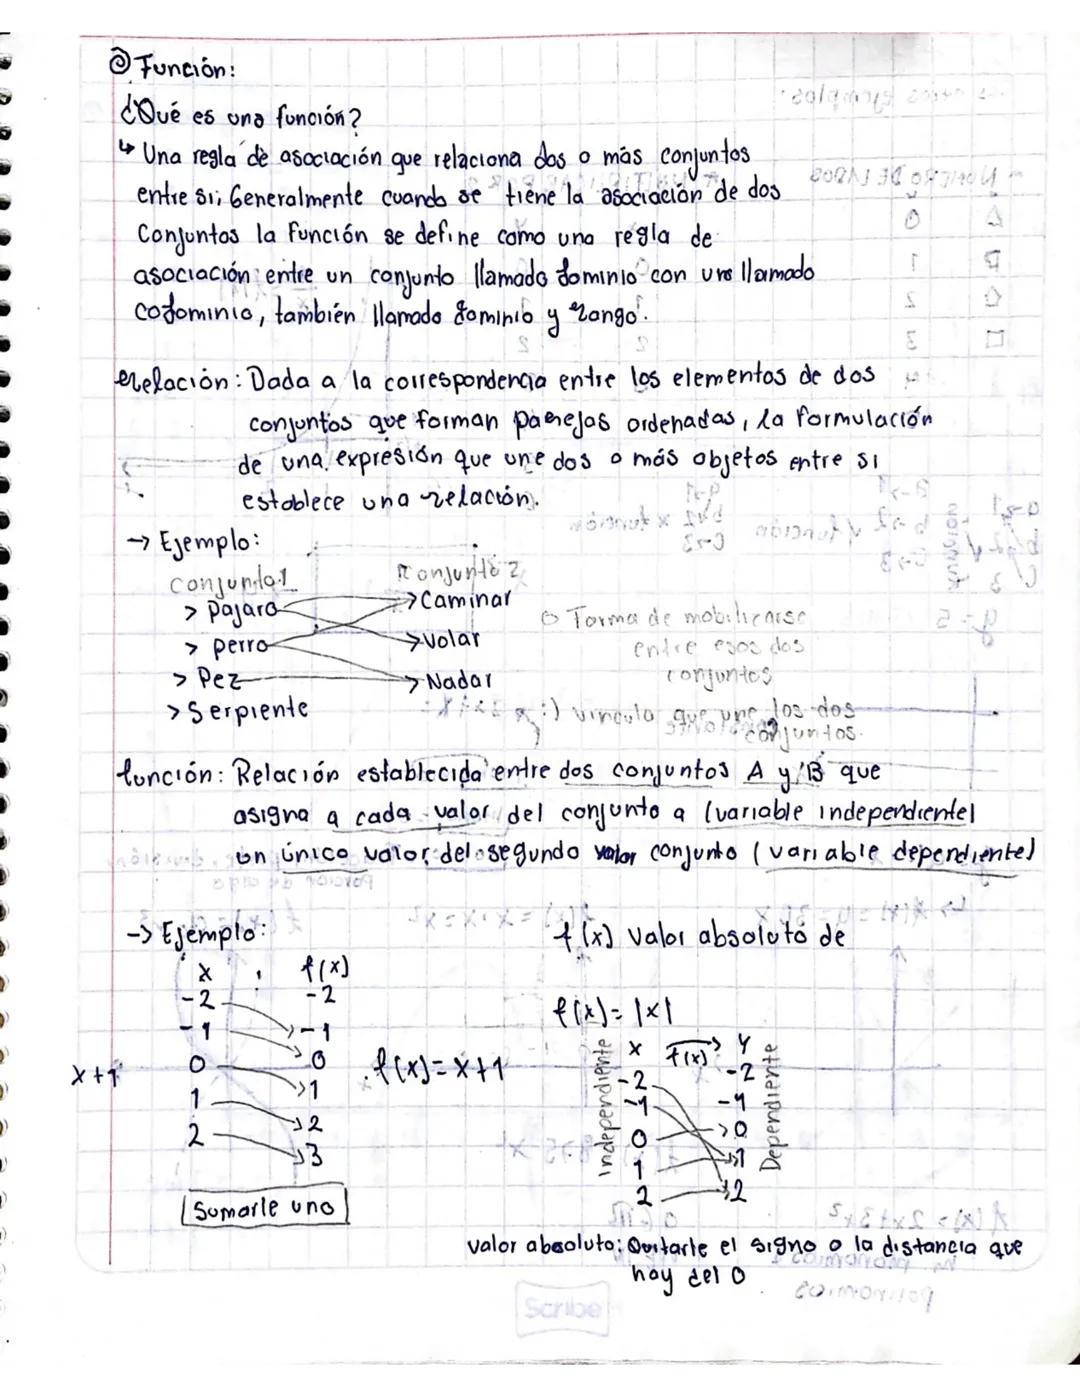 Función:
¿Qué es una función?
↳ Una regla de asociación que relaciona dos o más conjuntos
entre si; Generalmente cuando se tiene la asociación de dos
Conjuntos la función se define como una regla de
asociación entre un conjunto llamado dominio con uno llamado
codominio, también llamado dominio y rango.
relación: Dada a la correspondencia entre los elementos de dos
conjuntos que forman parejas ordenadas, la formulación
de una expresión que une dos o más objetos entre si
establece una relación.
→ Ejemplo:
conjunto 1 conjunto 2
> Pajaro → Caminar
> perro → Volar
> Pez → Nadar
> Serpiente
Forma de mobilizarse
entre esos dos
conjuntos
:) vinculo que une los dos
conjuntos.
función: Relación establecida entre dos conjuntos A y B que
asigna a cada valor del conjunto a (variable independiente)
un único valor del segundo valor conjunto (variable dependiente)
→ Ejemplo:
x f(x)
-2 -2
-1 -1
0 0
1 1
2 2
3
x+1
f(x)=x+1
Sumarle uno
f(x) Valor absoluto de
f(x)= |x|
Independiente
x f(x) Y
-2 -2
-1 -1
0 0
1 1
2 2
Dependiente
valor absoluto: Quitarle el signo o la distancia que
hay del 0
Scribe